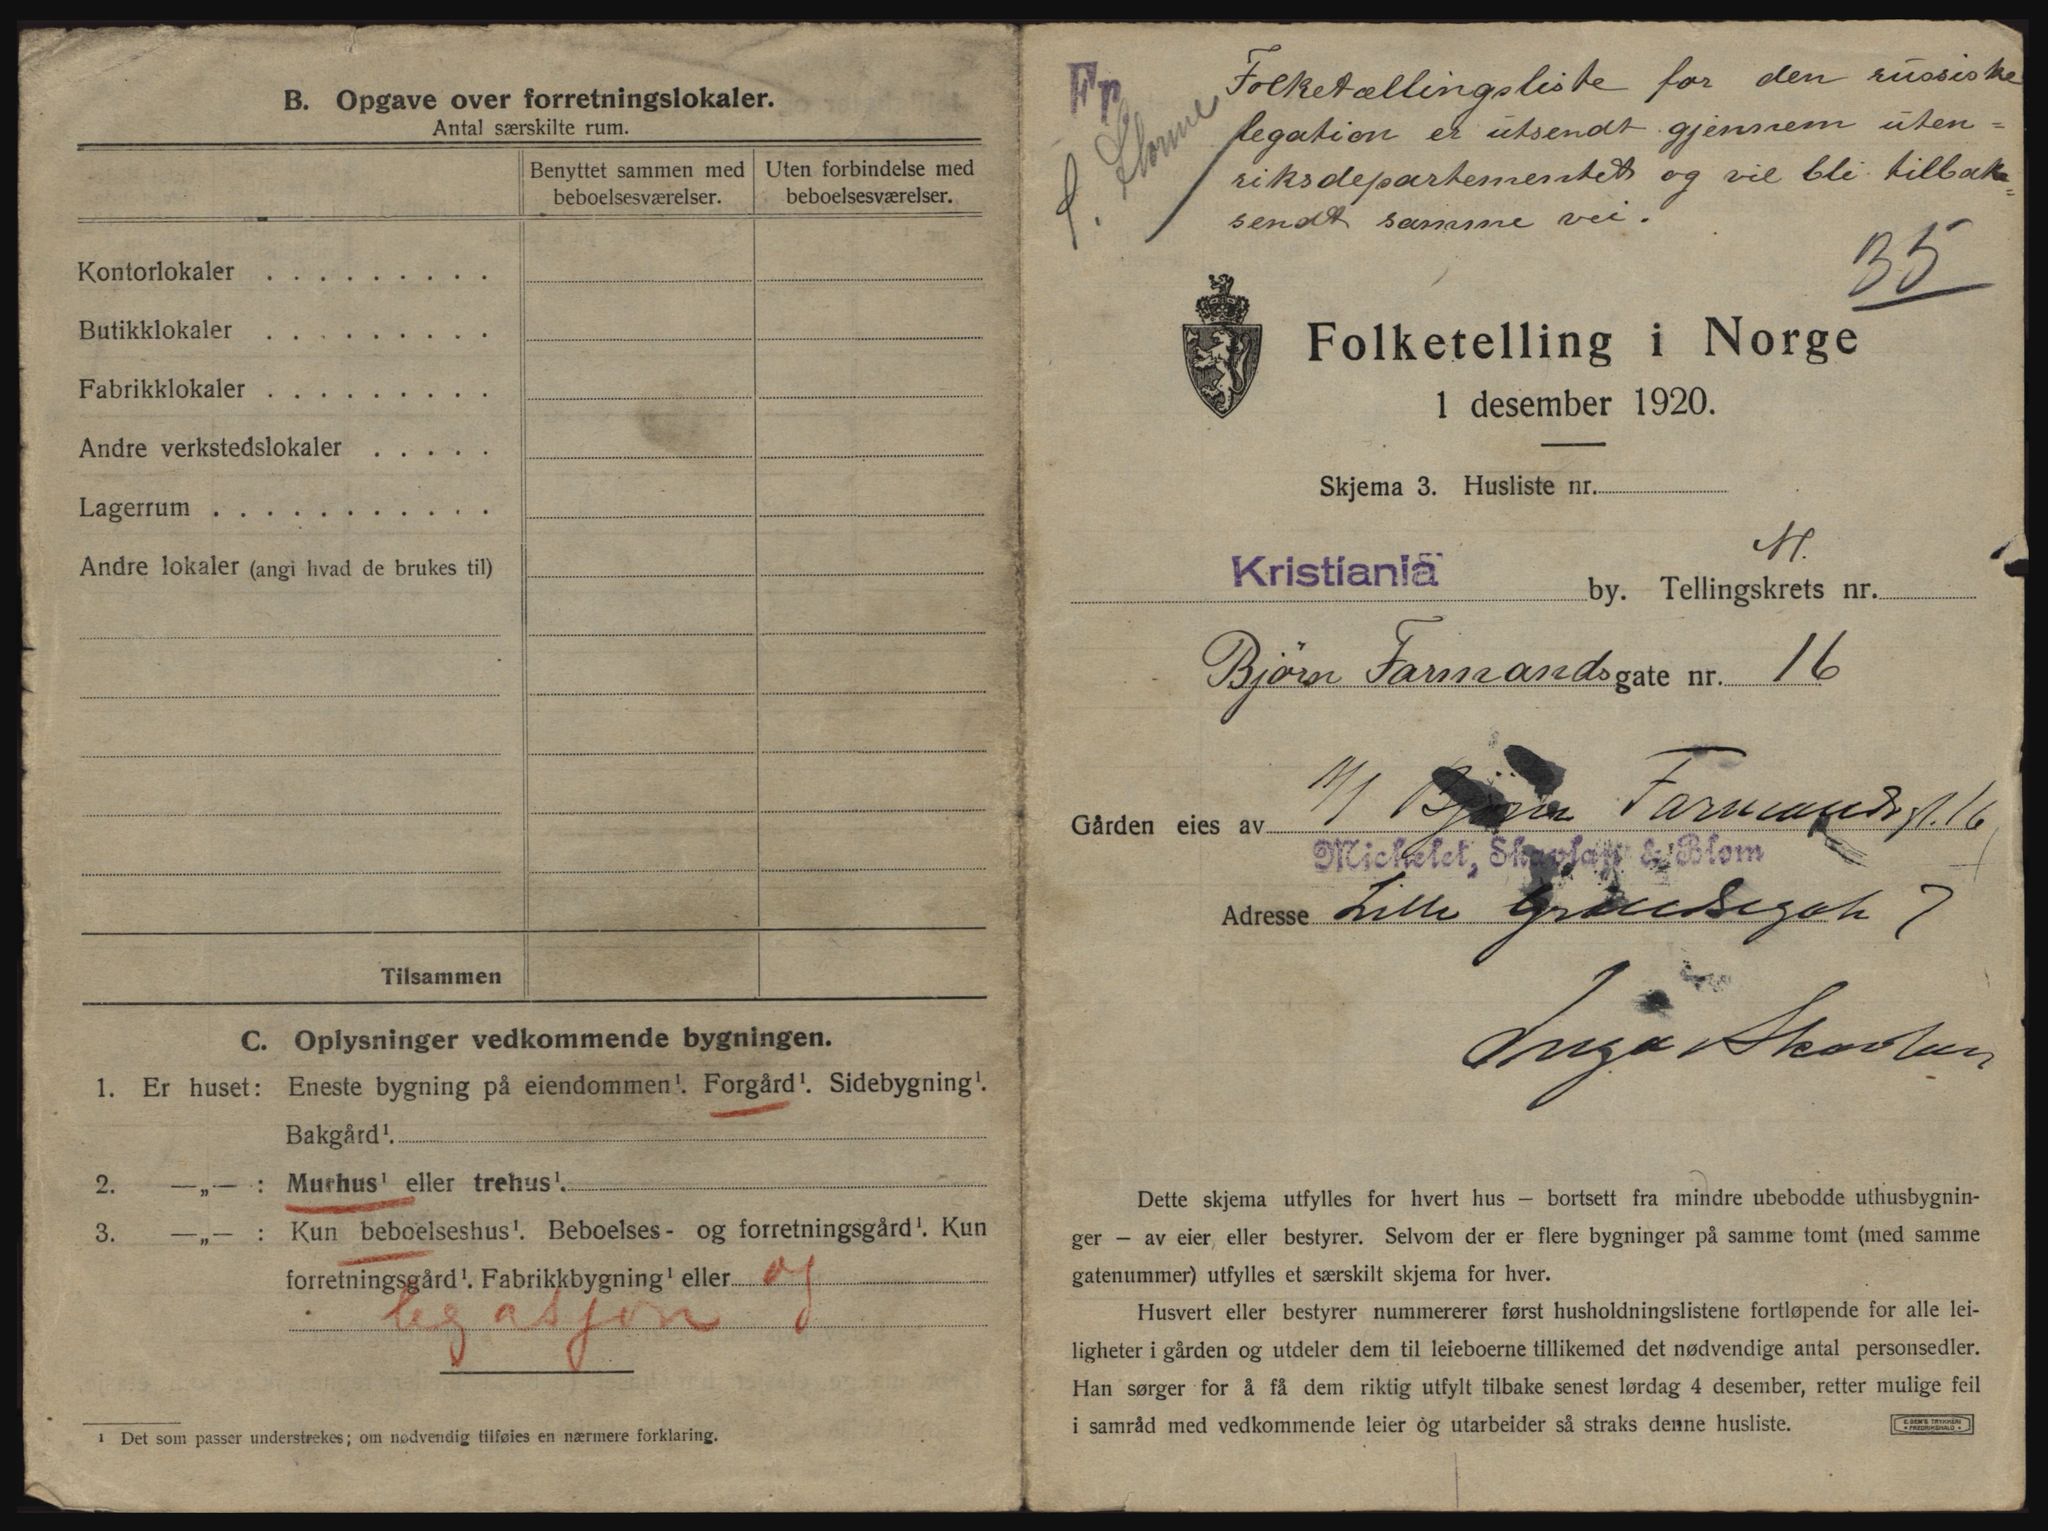 B. Opgave over forretningslokaler.
Antal særskilte rum.
Benyttet sammen med beboelsesværelser.
Uten forbindelse med beboelsesværelser.
Kontorlokaler . . . . . . . . .
Butikklokaler . . . . . . . . .
Fabrikklokaler . . . . . . . . .
Andre verkstedslokaler . . . . .
Lagerrum . . . . . . . . . . .
Andre lokaler (angi hvad de brukes til)
Tilsammen
C. Oplysninger vedkommende bygningen.
1. Er huset: Eneste bygning på eiendommen¹. Forgård¹. Sidebygning¹.
Bakgård¹.
2. —„— : Murhus¹ eller trehus¹.
3. —„— : Kun beboelseshus¹. Beboelses- og forretningsgård¹. Kun
forretningsgård¹. Fabrikkbygning¹ eller og
legasjon
¹ Det som passer understrekes; om nødvendig tilføies en nærmere forklaring.
Fr
Folketællingsliste for den russiske
legation er utsendt gjennem uten=
riksdepartementet og vil bli tilbake=
sendt samme vei.
35
Folketelling i Norge
1 desember 1920.
Skjema 3. Husliste nr.
Kristiania by. Tellingskrets nr.
Bjørn Farmandsgate nr. 16
Gården eies av A/S Bjørn Farmandsgt. 16
Michelet, Skavlan & Blom
Adresse Lille Grændsegate 7
Inga Skavlan
Dette skjema utfylles for hvert hus – bortsett fra mindre ubebodde uthusbygnin-
ger – av eier eller bestyrer. Selvom der er flere bygninger på samme tomt (med samme
gatenummer) utfylles et særskilt skjema for hver.
Husvert eller bestyrer nummererer først husholdningslistene fortløpende for alle lei-
ligheter i gården og utdeler dem til leieboerne tillikemed det nødvendige antal personsedler.
Han sørger for å få dem riktig utfylt tilbake senest lørdag 4 desember, retter mulige feil
i samråd med vedkommende leier og utarbeider så straks denne husliste.